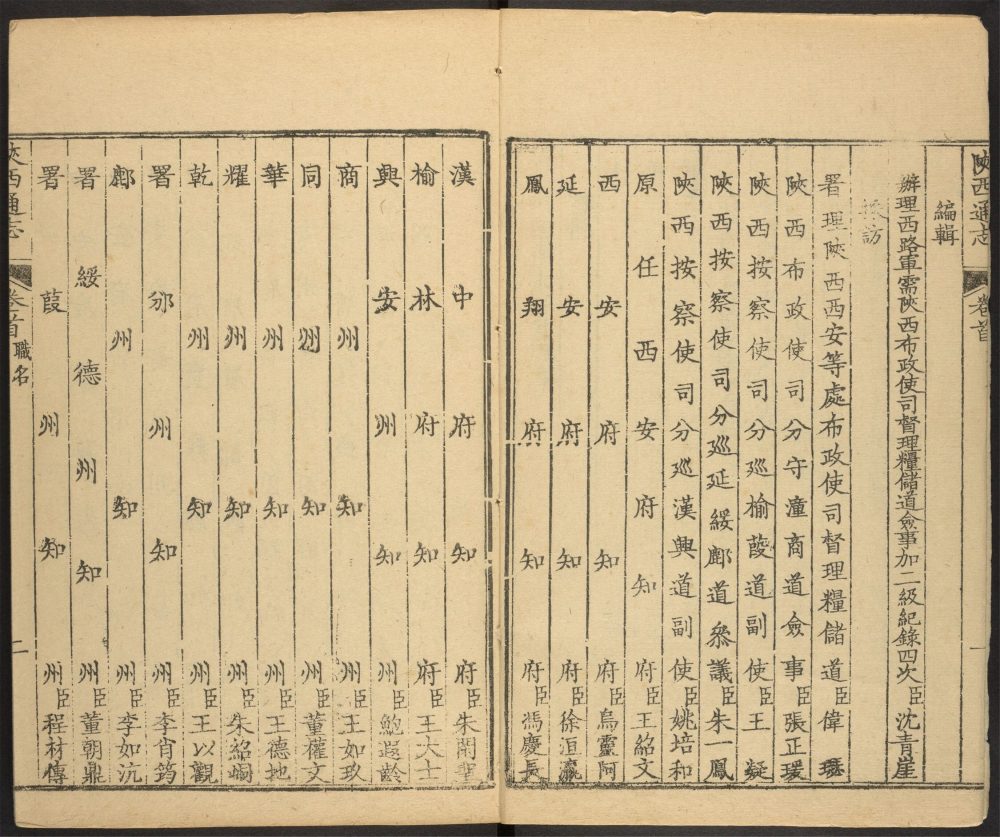 陝西通志 卷首 一
編輯
辦理西路軍需陝西布政使司督理糧儲道僉事加二級紀錄四次臣沈青崖
採訪
署理陝西西安等處布政使司督理糧儲道臣偉璸
陝西布政使司分守潼商道僉事臣張正瑗
陝西按察使司分巡榆葭道副使臣王凝
陝西按察使司分巡延綏鄜道參議臣朱一鳳
陝西按察使司分巡漢興道副使臣姚培和
原任西安府知府臣王紹文
西安府知府臣烏靈阿
延安府知府臣徐洹瀛
鳳翔府知府臣馮慶長
漢中府知府臣朱閑聖
榆林府知府臣王大士
興安州知州臣鮑遐齡
商州知州臣王如玖
同州知州臣董權文
華州知州臣王德地
耀州知州臣朱紹峒
乾州知州臣王以觀
署邠州知州臣李肖筠
鄜州知州臣李如沆
署綏德州知州臣董朝鼎
署葭州知州臣程材傳
陝西通志 卷首 職名 二